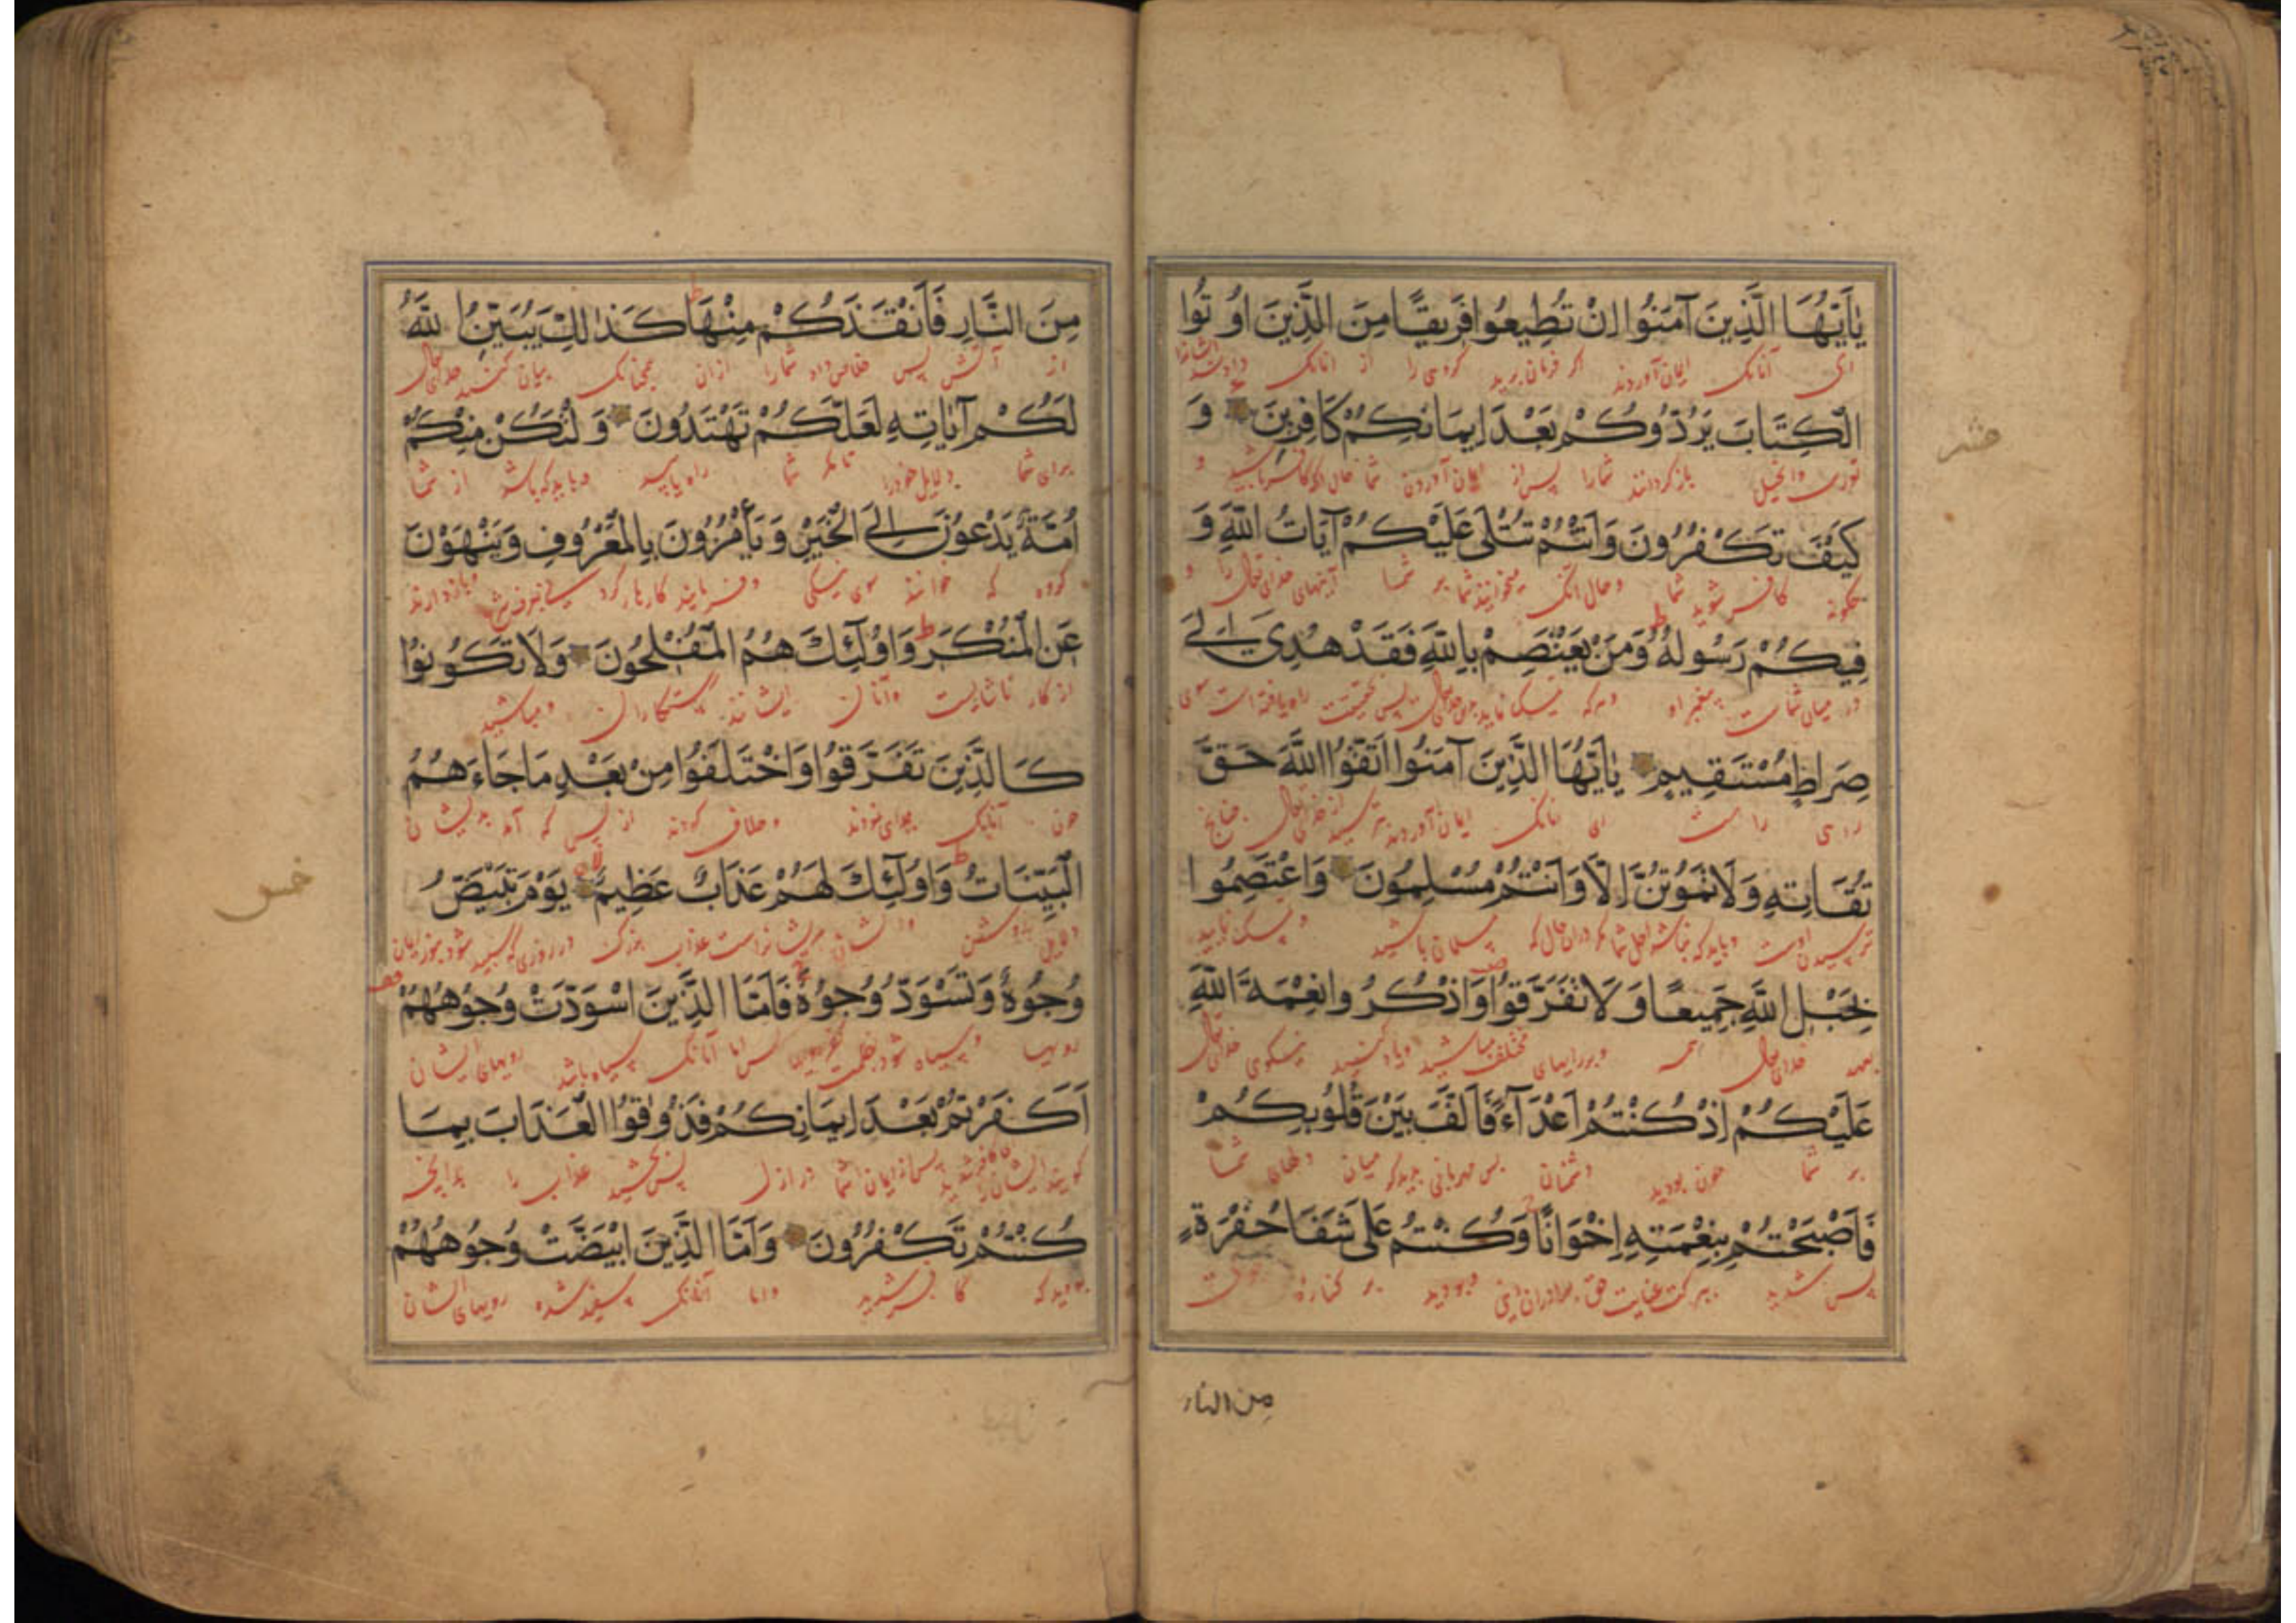 يٰأَيُّهَا الَّذِينَ آمَنُوا اِنْ تُطِيعُوا فَرِيقًا مِنَ الَّذِينَ اُوتُوا
ای آنانک ایمان آوردند اگر فرمان برید گروهی را از انانک
الْكِتَابَ يَرُدُّوكُمْ بَعْدَ اِيمَانِكُمْ كَافِرِينَ وَ
توریت وانجیل باز گردانند شمارا پس از ایمان آوردن شما و
عشر
كَيْفَ تَكْفُرُونَ وَاَنْتُمْ تُتْلَى عَلَيْكُمْ آيَاتُ اللَّهِ وَ
چکونه کافر شوید شما وحال آنک میخوانند شما بر شما آیتهای خدای تعالی را و
فِيكُمْ رَسُولُهُ وَمَنْ يَعْتَصِمْ بِاللَّهِ فَقَدْ هُدِيَ اِلَى
در میان شماست پیغمبر او وهرکه پس بحقیقت راه یافته است سوی
صِرَاطٍ مُسْتَقِيمٍ يٰأَيُّهَا الَّذِينَ آمَنُوا اتَّقُوا اللَّهَ حَقَّ
راهی راست ای انانک ایمان آوردند بترسید از خدای تعالی چنانچ
تُقَاتِهِ وَلَا تَمُوتُنَّ اِلَّا وَاَنْتُمْ مُسْلِمُونَ وَاعْتَصِمُوا
ترسیدن اوست وباید که مسلمان باشید
بِحَبْلِ اللَّهِ جَمِيعًا وَلَا تَفَرَّقُوا وَاذْكُرُوا نِعْمَةَ اللَّهِ
بعهد خدای تعالی همه مختلف مباشید ویاد کنید نیکوی خدای تعالی
عَلَيْكُمْ اِذْ كُنْتُمْ اَعْدَآءً فَاَلَّفَ بَيْنَ قُلُوبِكُمْ
بر شما چون بودید دشمنان پس مهربانی میان دلهای شما
فَاَصْبَحْتُمْ بِنِعْمَتِهِ اِخْوَانًا وَكُنْتُمْ عَلَى شَفَا حُفْرَةٍ
پس شدید ببرکت عنایت حق برادران وبودید بر کناره
مِن النار
مِنَ النَّارِ فَاَنْقَذَكُمْ مِنْهَا كَذٰلِكَ يُبَيِّنُ اللَّهُ
از آتش پس خلاص داد شمارا ازان همچنانک بیان کند خدای تعالی
لَكُمْ آيَاتِهِ لَعَلَّكُمْ تَهْتَدُونَ وَلْتَكُنْ مِنْكُمْ
برای شما دلایل خود را تا مگر شما راه یابید وباید که باشد از شما
اُمَّةٌ يَدْعُونَ اِلَى الْخَيْرِ وَيَأْمُرُونَ بِالْمَعْرُوفِ وَيَنْهَوْنَ
گروه که خوانند سوی نیکی وفرمایند وباز دارند
عَنِ الْمُنْكَرِ وَاُولٰئِكَ هُمُ الْمُفْلِحُونَ وَلَا تَكُونُوا
از کار ناشایست وآنان ایشانند رستکاران ومباشید
كَالَّذِينَ تَفَرَّقُوا وَاخْتَلَفُوا مِنْ بَعْدِ مَا جَاءَهُمُ
چون آنانک جدای نمودند وخلاف کردند از پس که آمد بدیشان
الْبَيِّنَاتُ وَاُولٰئِكَ لَهُمْ عَذَابٌ عَظِيمٌ يَوْمَ تَبْيَضُّ
دلایل روشن ایشانراست عذاب بزرگ در روزی که سپید شود
خمس
وُجُوهٌ وَتَسْوَدُّ وُجُوهٌ فَاَمَّا الَّذِينَ اسْوَدَّتْ وُجُوهُهُمْ
رویها وسیاه شود اما آنانک سیاه باشد رویهای ایشان
اَكَفَرْتُمْ بَعْدَ اِيمَانِكُمْ فَذُوقُوا الْعَذَابَ بِمَا
کویند ایشان را کافر شدید پس از ایمان شما در ازل پس بچشید عذاب را بدانچه
كُنْتُمْ تَكْفُرُونَ وَاَمَّا الَّذِينَ ابْيَضَّتْ وُجُوهُهُمْ
بودید که کافر شدید واما آنانک سپید شده رویهای ایشان